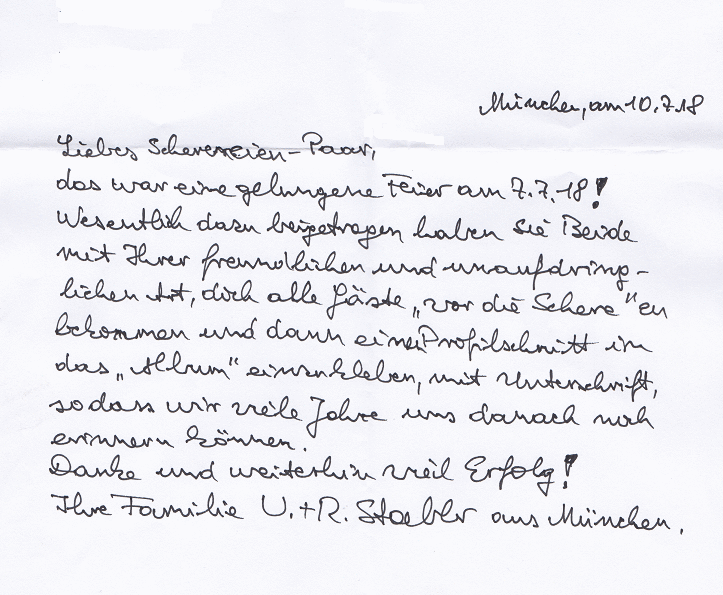 München, am 10.7.18
Liebes Scherereien-Paar,
das war eine gelungene Feier am 7.7.18!
Wesentlich dazu beigetragen haben Sie Beide
mit Ihrer freundlichen und unaufdring-
lichen Art, doch alle Gäste „vor die Schere“ zu
bekommen und dann einen Profilschnitt in
das „Album“ einzukleben, mit Unterschrift,
sodass wir viele Jahre uns danach noch
erinnern können.
Danke und weiterhin viel Erfolg!
Ihre Familie U.+R. Staebler aus München.